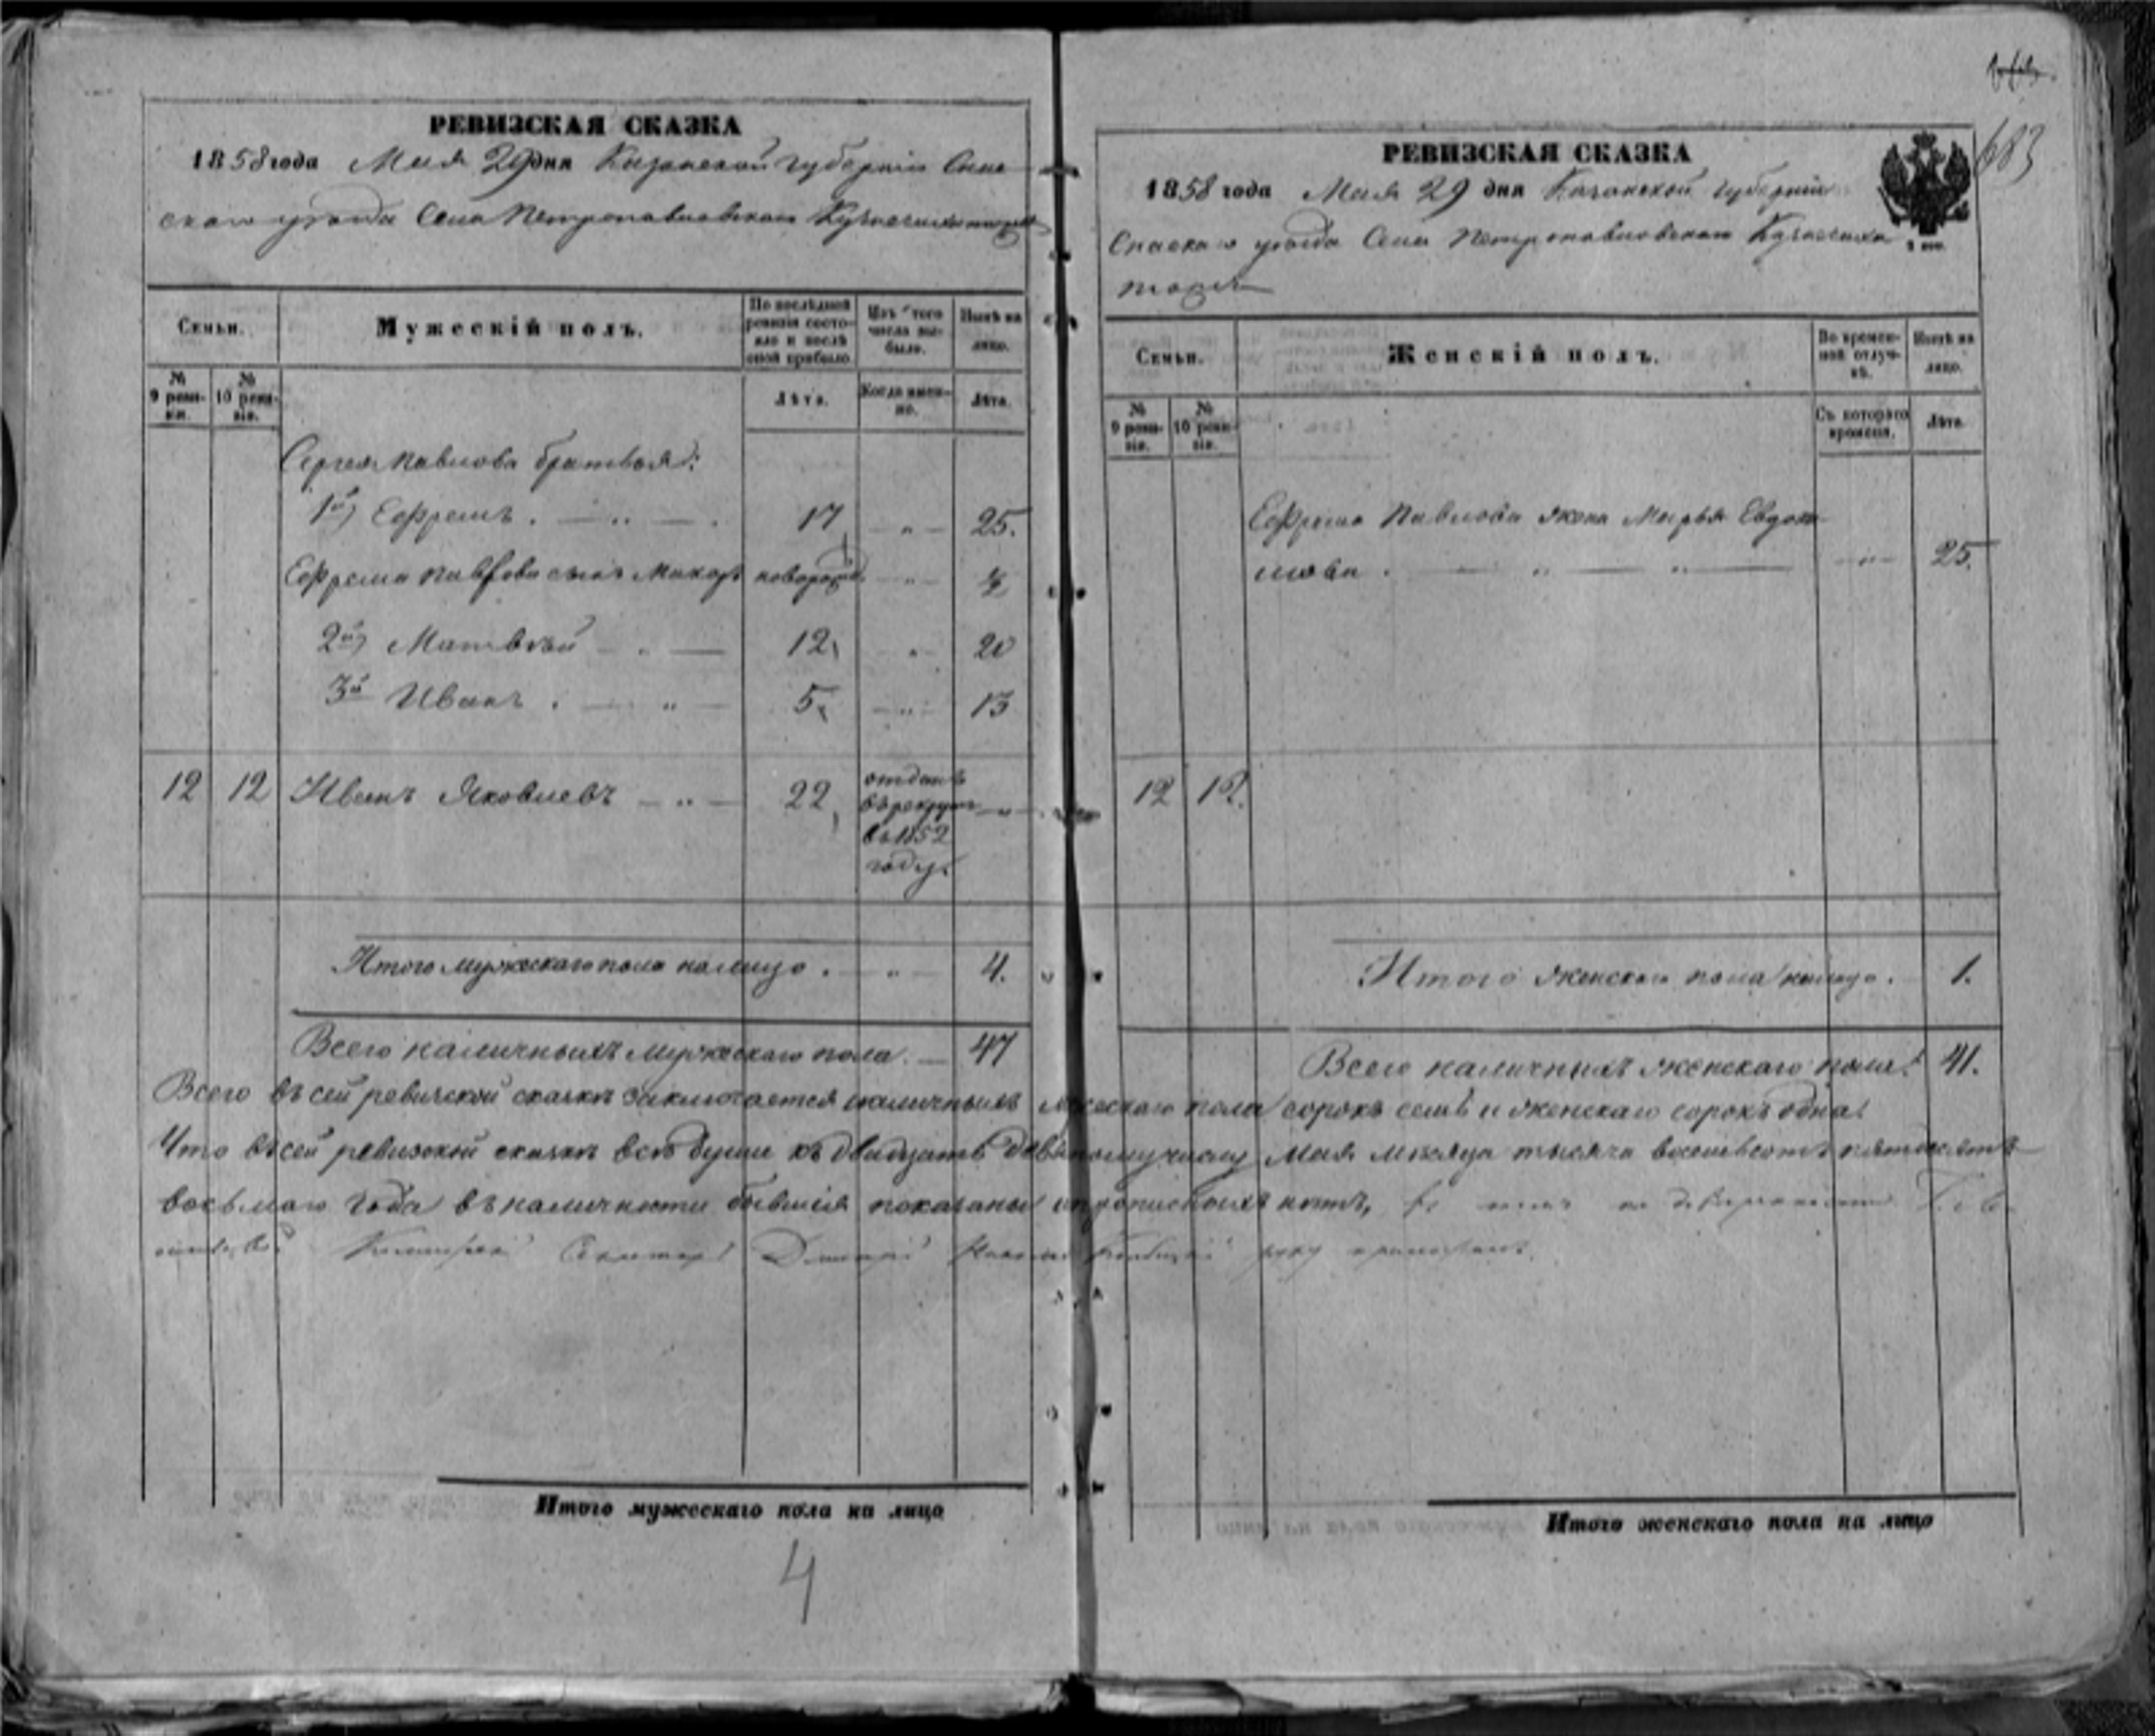 РЕВИЗСКАЯ СКАЗКА
1858 года Мая 29 дня Казанской губернiи Спас
скаго уѣзда Села Петропавловскаго Кузнечиха тожъ
Семьи.
Мужескiй полъ.
По послѣдней ревизiи состояло и послѣ оной прибыло.
Изъ того числа выбыло.
Нынѣ на лицо.
№ 9 ревизiи.
№ 10 ревизiи.
Лѣта.
Когда именно.
Лѣта.
Сергея Павлова братья:
1й) Ефремъ . — „ — . 17 „ 25.
Ефрема Павлова сынъ Макаръ новорожд „ ½
2й) Матвѣй — . — 12, „ 20
3й Иванъ . — „ — 5, — „ — 13
12 12 Иванъ Яковлевъ — „ — 22, отданъ въ рекруты въ 1852 году. — „ —
Итого мужескаго пола налицо . — „ 4.
Всего наличныхъ мужескаго пола. — 47
Итого мужескаго пола на лицо
4
683
РЕВИЗСКАЯ СКАЗКА
1858 года Мая 29 дня Казанской губернiи
Спаскаго уѣзда Села Петропавловскаго Кузнечиха
тожъ
Семьи.
Женскiй полъ.
Во временной отлучкѣ.
Нынѣ на лицо.
№ 9 ревизiи.
№ 10 ревизiи.
Съ котораго времени.
Лѣта
Ефрема Павлова жена Марья Евдоки
мова . — „ — „ — — „ — 25.
12 12.
Итого женскаго пола налицо . 1.
Всего наличныхъ женскаго пола. 41.
Всего въ сей ревизской сказкѣ заключается наличныхъ мужескаго пола сорокъ семь и женскаго сорокъ одна.
Что въ сей ревизской сказкѣ всѣ души къ двадцать девятому числу Мая мѣсяца тысяча восемьсотъ пятьдесятъ
восьмаго года въ наличности бывшiя показаны и прописныхъ нѣтъ,
руку приложилъ
Итого женскаго пола на лицо